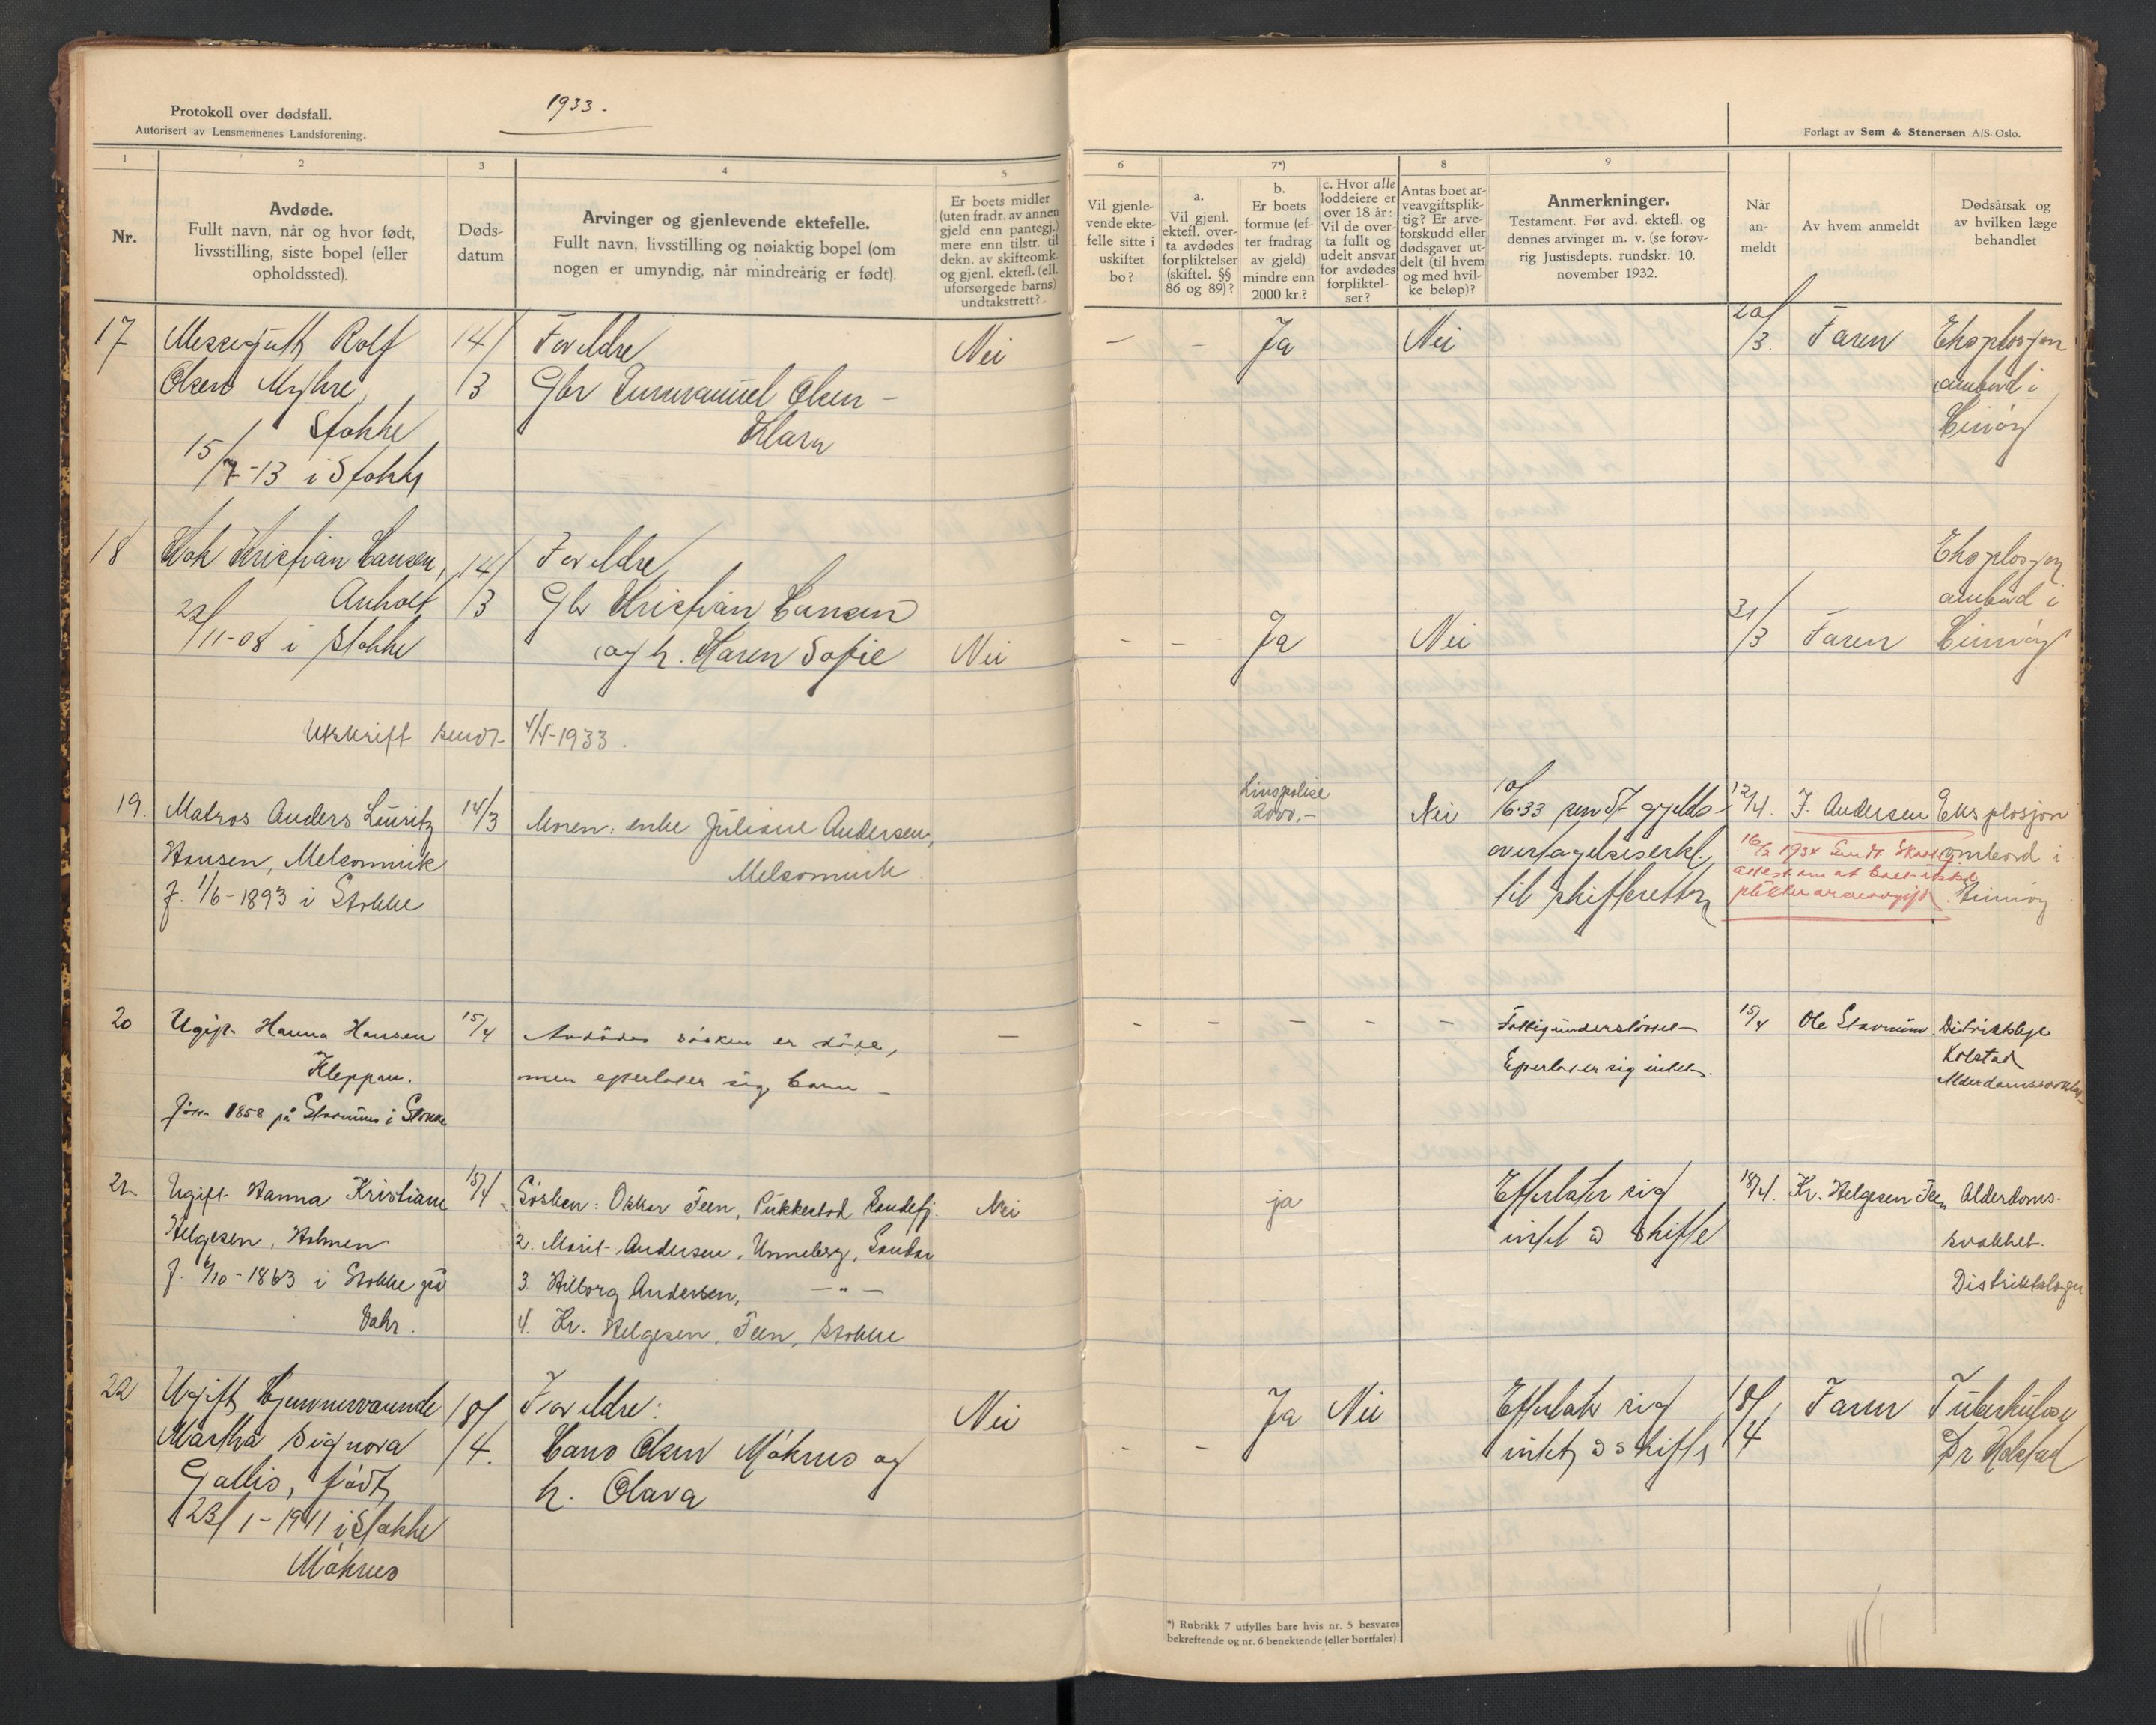 Protokoll over dødsfall.
Autorisert av Lensmennenes Landsforening.
1933.
Forlagt av Sem & Stenersen A/S. Oslo.
1
2
3
4
5
6
7*)
8
9
Nr.
Avdøde.
Fullt navn, når og hvor født,
livsstilling, siste bopel (eller
opholdssted).
Døds-
datum
Arvinger og gjenlevende ektefelle.
Fullt navn, livsstilling og nøiaktig bopel (om
nogen er umyndig, når mindreårig er født).
Er boets midler
(uten fradr. av annen
gjeld enn pantegj.)
mere enn tilstr. til
dekn. av skifteomk.
og gjenl. ektefl. (ell.
uforsørgede barns)
undtakstrett?
Vil gjenle-
vende ekte-
felle sitte i
uskiftet
bo?
a.
Vil gjenl.
ektefl. over-
ta avdødes
forpliktelser
(skiftel. §§
86 og 89)?
b.
Er boets
formue (ef-
ter fradrag
av gjeld)
mindre enn
2000 kr.?
c. Hvor alle
loddeiere er
over 18 år:
Vil de over-
ta fullt og
udelt ansvar
for avdødes
forpliktel-
ser?
Antas boet ar-
veavgiftsplik-
tig? Er arve-
forskudd eller
dødsgaver ut-
delt (til hvem
og med hvil-
ke beløp)?
Anmerkninger.
Testament. Før avd. ektefl. og
dennes arvinger m. v. (se forøv-
rig Justisdepts. rundskr. 10.
november 1932.
Når
an-
meldt
Av hvem anmeldt
Dødsårsak og
av hvilken læge
behandlet
17 Messegutt Rolf 14/3 Foreldre Nei - - Ja Nei 20/3. Faren Eksplosjon
Olsen Myhre, Gbr Emmanuel Olsen - ombord i
Stokke Klara Himöy
15/7-13 i Stokke
18 Kok Kristian Hansen, 14/3 Foreldre Eksplosjon
Anholt Gbr Kristian Hansen ombord i
22/11-08 i Stokke og h. Karen Sofie Nei - - Ja Nei 31/3 Faren Himöy
Utskrift sendt 4/4-1933.
19. Matros Anders Lauritz 14/3 Moren: enke Juliane Andersen, Livspolise 2000,- Nei 10/6.33 sendt gjelds- 12/4. J. Andersen Eksplosjon
Hansen, Melsomvik Melsomvik. overtagelseserkl. 16/2 1934 Sendt ombord i
f. 1/6-1893 i Stokke til skifteretten attest om at boet Himöy
20 Ugift Hanna Hansen 15/4 Avdödes sösken er döde, - - - - - - Fattigunderstöttet 15/4 Ole Stavnum Distriktslege
Kleppan. men efterlater sig barn - Efterlater sig intet. Kolstad
född 1858 på Stavnum i Stokke Alderdomssvakhet
21. Ugift Hanna Kristiane 15/4 Sösken: Oskar Feen, Pukkestad Sandefj. Nei ja Efterlater sig 18/4. Kr. Helgesen Feen Alderdoms-
Helgesen, Holmen 2. Marit Andersen, Unneberg, Sandar intet å skifte svakhet.
f. 6/10-1863 i Stokke på 3. Hilborg Andersen, - " - Distriktslegen
Vahr. 4. Kr. Helgesen, Feen, Stokke
22 Ugift Hjemmeværende 18/4. Foreldre: Nei - - Ja Nei Efterlater sig 18/4 Faren Tuberkulose
Martha Signora Hans Olsen Måknes og intet å skifte Dr Kolstad
Gallis, født h. Olava
23/1-1911 i Stokke
Måknes
*) Rubrikk 7 utfylles bare hvis nr. 5 besvares
bekreftende og nr. 6 benektende (eller bortfaler)